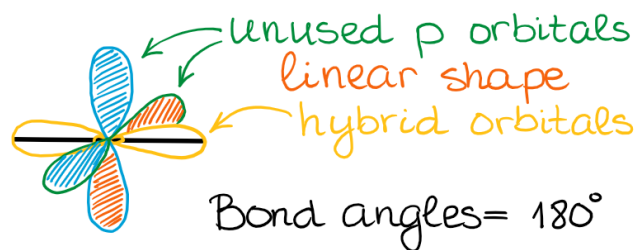 unused p orbitals
linear shape
hybrid orbitals
Bond angles= 180°